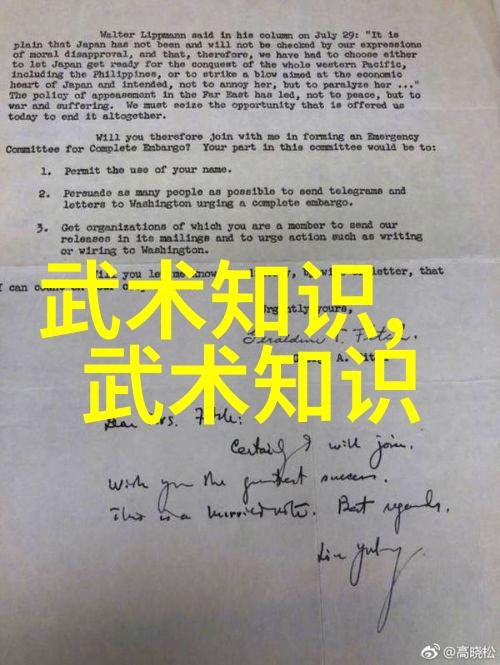 Walter Lippmann said in his column on July 29: "It is
plain that Japan has not been and will not be checked by our expressions
of moral disapproval, and that, therefore, we have had to choose either
to let Japan get ready for the conquest of the whole western Pacific,
including the Philippines, or to strike a blow aimed at the economic
heart of Japan and intended, not to annoy her, but to paralyze her ..."
The policy of appeasement in the Far East has led, not to peace, but to
war and suffering. We must seize the opportunity that is offered us
today to end it altogether.
Will you therefore join with me in forming an Emergency
Committee for Complete Embargo? Your part in this committee would be to:
1. Permit the use of your name.
2. Persuade as many people as possible to send telegrams and
letters to Washington urging a complete embargo.
3. Get organizations of which you are a member to send our
releases in its mailings and to urge action such as writing
or wiring to Washington.
you let me know letter, that
I can
武术知识,
武术知识
Urgently yours,
Geraldine T. Fitch.
A.
Dear Mrs. Fitch:
Certainly I will join.
Wish you the greatest success.
This is a hurried note. Best regards.
Lin Yutang
@高晓松